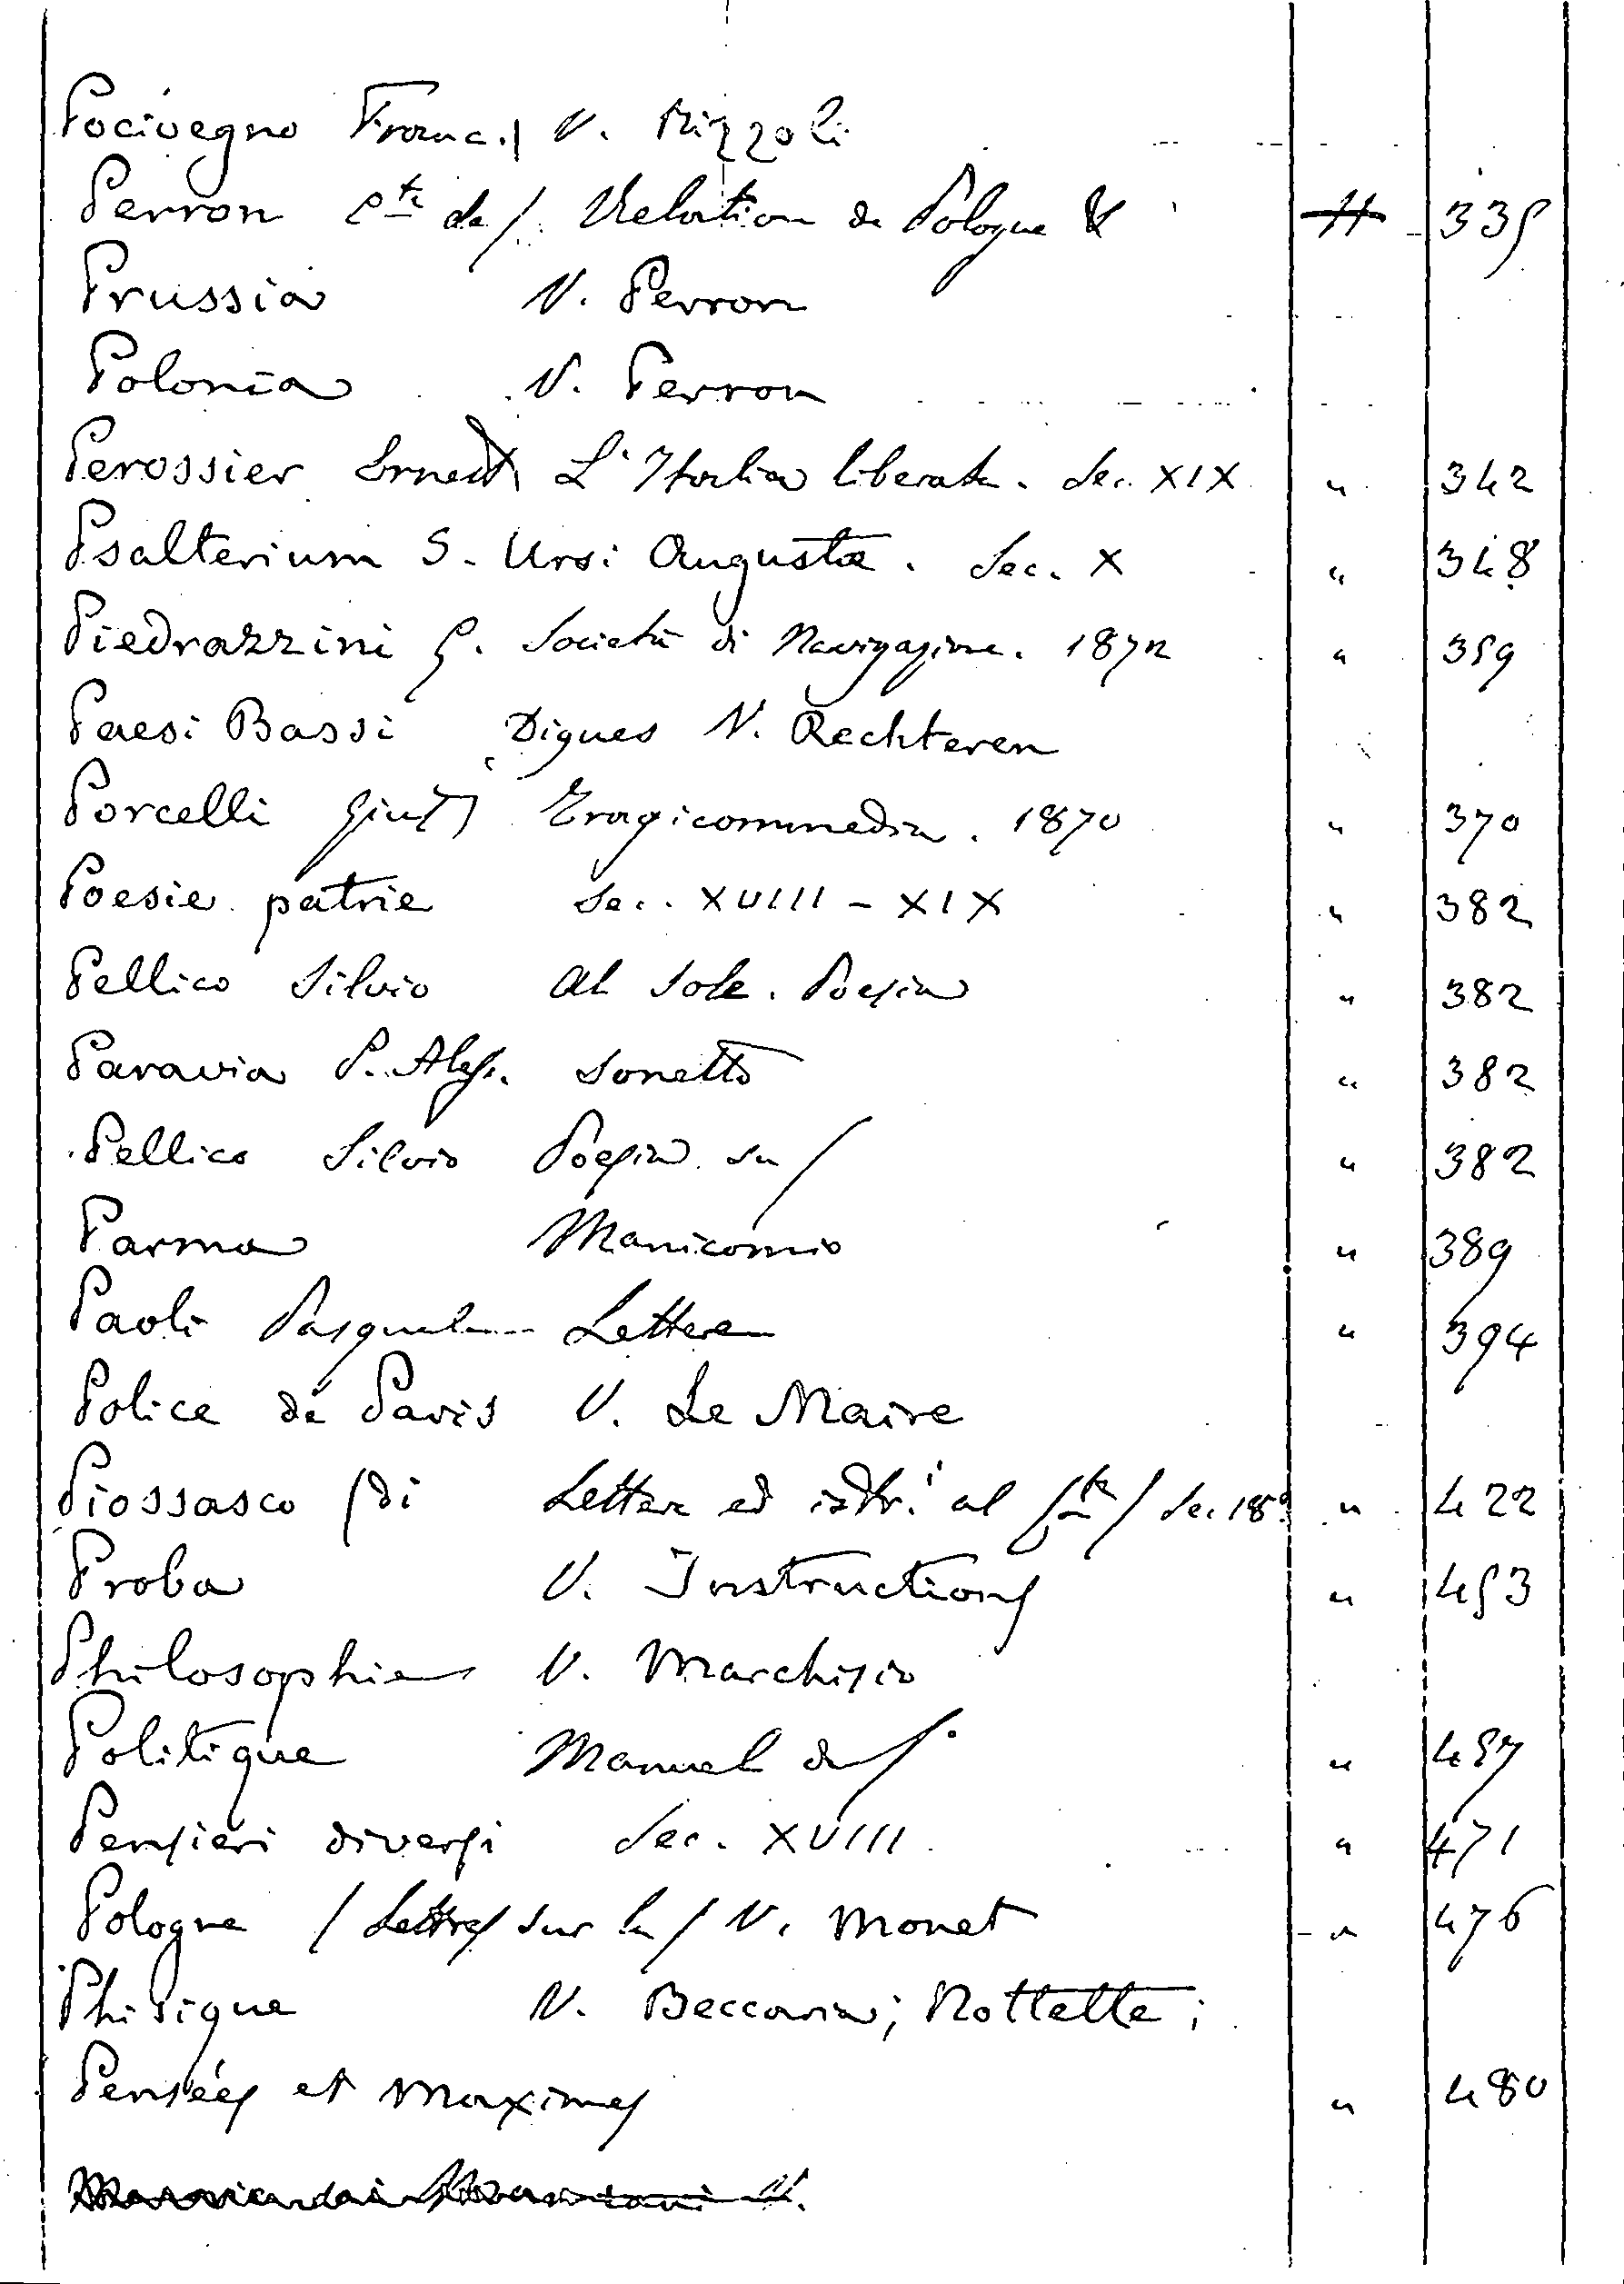 Pocivegno Franc.| V. Rizzoli
Perron Cte de/. Relation de Pologne & H 335
Prussia V. Perron
Polonia V. Perron
Perossier Ernest L'Italia liberata. Sec. XIX " 342
Psalterium S. Ursi Augustæ. Sec. X " 348
Piedrazzini G. Società di Navigazione. 1872 " 359
Paesi Bassi Digues V. Rechteren
Porcelli Tragicommedia. 1870 " 370
Poesie patrie Sec. XVIII - XIX " 382
Pellico Silvio Al Sole. Poesia " 382
Paravia P. Aless. Sonetto " 382
Pellico Silvio Poesia su/ " 382
Parma Manicomio " 389
Paoli Pasquale Lettere " 394
Police de Paris V. Le Maire
Piossasco (di Lettere ed istri al / Sec. 18° " 422
Proba V. Instructions " 453
Philosophie V. Marchisio
Politique Manuel de/. " 457
Pensieri diversi Sec. XVIII " 471
Pologne / Lettres sur la/ V. Monet " 476
Phisique V. Beccaria; Nottette;
Pensées et Maximes " 480